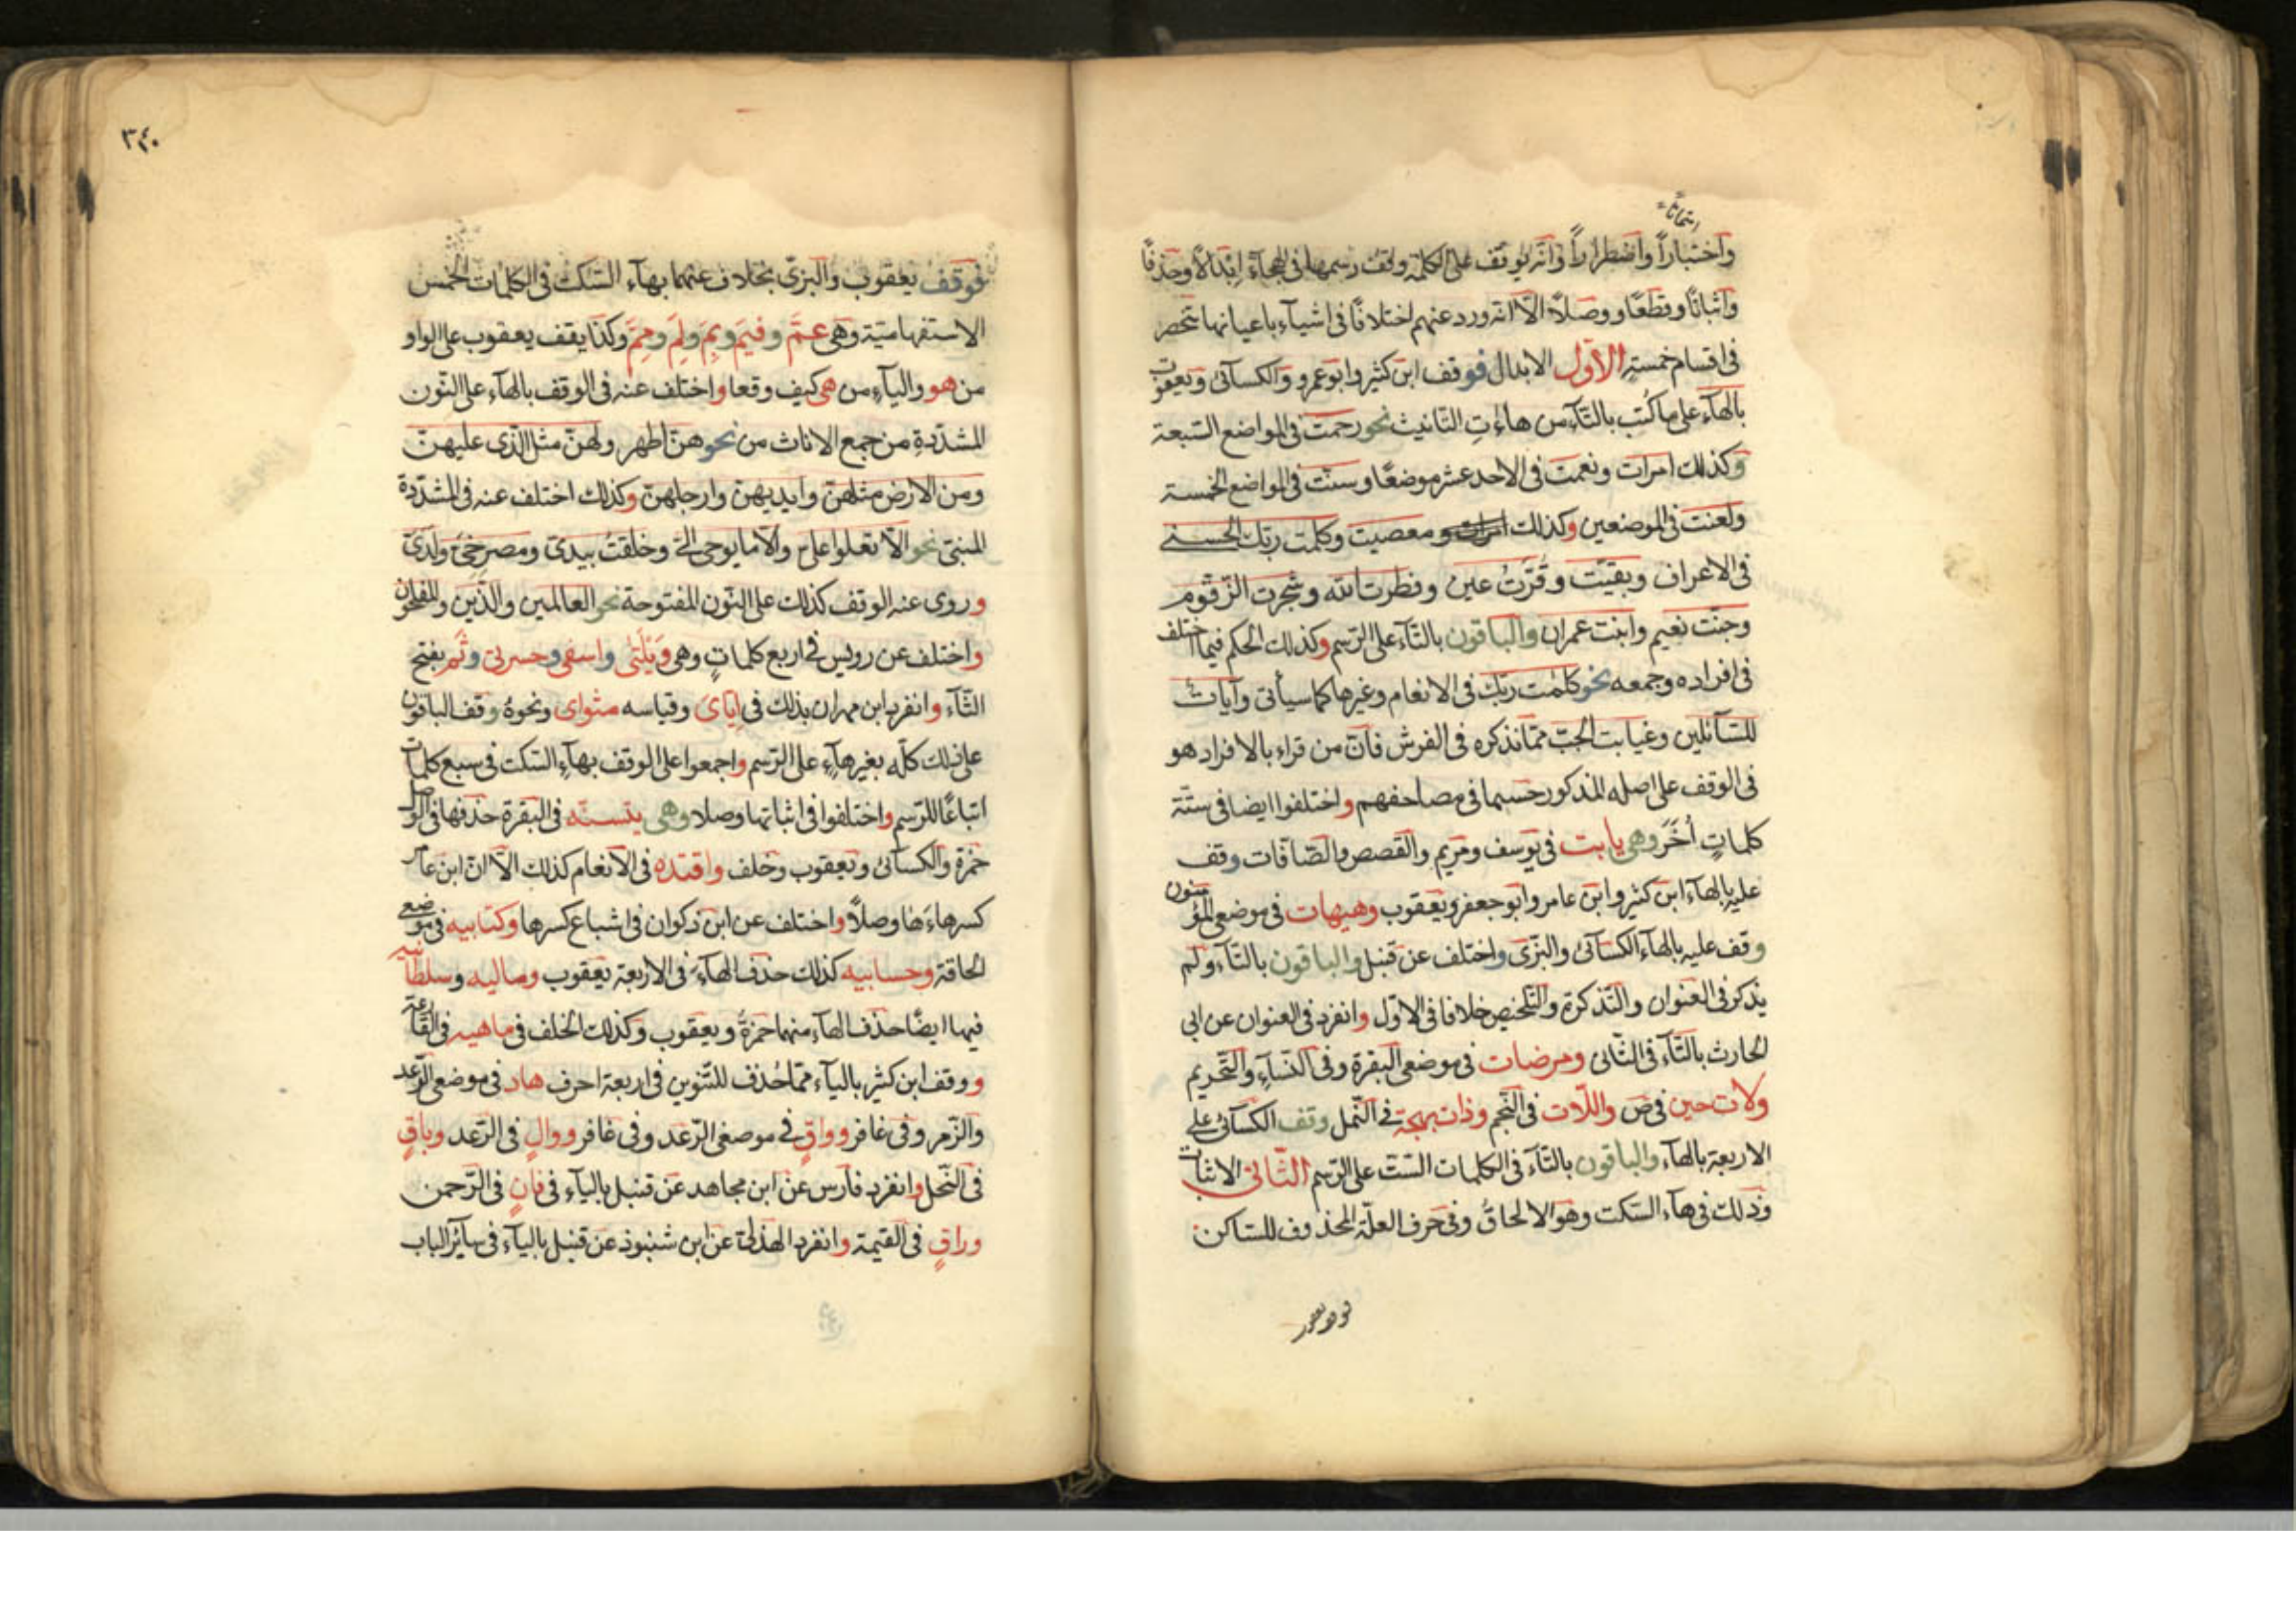 امتحانا
واختبارا واضطرارا وانه يوقف على الكلمة وفق رسمها فى الهجاء ابدالا وحذفا
واثباتا وقطعا ووصلا الا انه ورد عنهم اختلافا فى اشياء باعيانها تنحصر
فى اقسام خمسة الاول الابدال فوقف ابن كثير وابو عمرو والكسائى ويعقوب
بالهاء على ما كتب بالتاء من هاءت التانيث نحو رحمت فى المواضع السبعة
وكذلك امرات ونعمت فى الاحد عشر موضعا وسنت فى المواضع الخمسة
ولعنت فى الموضعين وكذلك ومعصيت وكلمت ربك الحسنى
فى الاعراف وبقيت وقرت عين وفطرت الله وشجرت الزقوم
وجنت نعيم وابنت عمران والباقون بالتاء على الرسم وكذلك الحكم فيما اختلف
فى افراده وجمعه نحو كلمت ربك فى الانعام وغيرها كما سيأتى وآيات
للسائلين وغيابت الجب مما نذكره فى الفرش فان من قراء بالافراد هو
فى الوقف على اصله المذكور حسبما فى مصاحفهم واختلفوا ايضا فى ستة
كلمات أخر وهى يا بت فى يوسف ومريم والقصص والصافات وقف
عليه بالهاء ابن كثير وابن عامر وابو جعفر ويعقوب وهيهات فى موضعى المؤمنون
وقف عليه بالهاء الكسائى والبزى واختلف عن قنبل والباقون بالتاء ولم
يذكر فى العنوان والتذكرة والتلخيص خلافا فى الاول وانفرد فى العنوان عن ابى
الحارث بالتاء فى الثانى ومرضات فى موضعى البقرة وفى النساء والتحريم
ولات حين فى ص واللات فى النجم وذات بهجة فى النمل وقف الكسائى على
الاربعة بالهاء والباقون بالتاء فى الكلمات الست على الرسم الثانى الاثبات
وذلك فى هاء السكت وهو الالحاق وفى حرف العلة المحذوف للساكن
فوقف يعقوب
٣٤٠
فوقف يعقوب والبزى بخلاف عنهما بهاء السكت فى الكلمات الخمس
الاستفهامية وهى عم وفيم وبم ولم ومم وكذا يقف يعقوب على الواو
من هو والياء من هى كيف وقعا واختلف عنه فى الوقف بالهاء على النون
المشددة من جمع الاناث من نحو هن اطهر ولهن مثل الذى عليهن
ومن الارض مثلهن وايديهن وارجلهن وكذلك اختلف عنه فى المشددة
المبنى نحو الا تعلوا على والا ما يوحى الى وخلقت بيدى ومصرخى ولدى
وروى عنه الوقف كذلك على النون المفتوحة نحو العالمين والذين والمفلحون
واختلف عن رويس فى اربع كلمات وهى ويلتى واسفى وحسرتى وثم بفتح
الثاء وانفرد ابن مهران بذلك فى اياى وقياسه مثواى ونحوه وقف الباقون
على ذلك كله بغير هاء على الرسم واجمعوا على الوقف بهاء السكت فى سبع كلمات
اتباعا للرسم واختلفوا فى اثباتها وصلا وهى يتسنه فى البقرة حذفها فى الوصل
حمزة والكسائى ويعقوب وخلف واقتده فى الانعام كذلك الا ان ابن عامر
كسر هاءها وصلا واختلف عن ابن ذكوان فى اشباع كسرها وكتابيه فى موضعى
الحاقة وحسابيه كذلك حذف الهاء فى الاربعة يعقوب وماليه وسلطانيه
فيها ايضا حذف الهاء منهما حمزة ويعقوب وكذلك الخلف فى ماهيه فى القارعة
ووقف ابن كثير بالياء مما حذف للتنوين فى اربعة احرف هاد فى موضعى الرعد
والزمر وفى غافر وواق فى موضعى الرعد وفى غافر ووال فى الرعد وباق
فى النحل وانفرد فارس عن ابن مجاهد عن قنبل بالياء فى فان فى الرحمن
وراق فى القيمة وانفرد الهذلى عن ابن شنبوذ عن قنبل بالياء فى سائر الباب